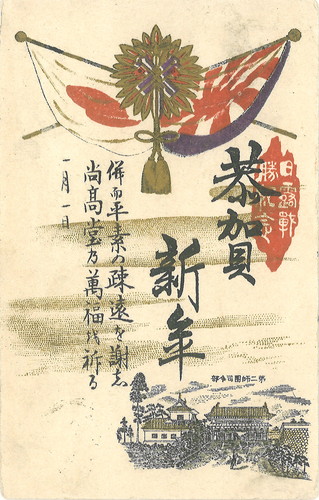 日露戰
勝紀念
恭加貝
新年
併而平素の疎遠を謝し
尚髙堂乃萬福を祈る
一月一日
第二師團司令部